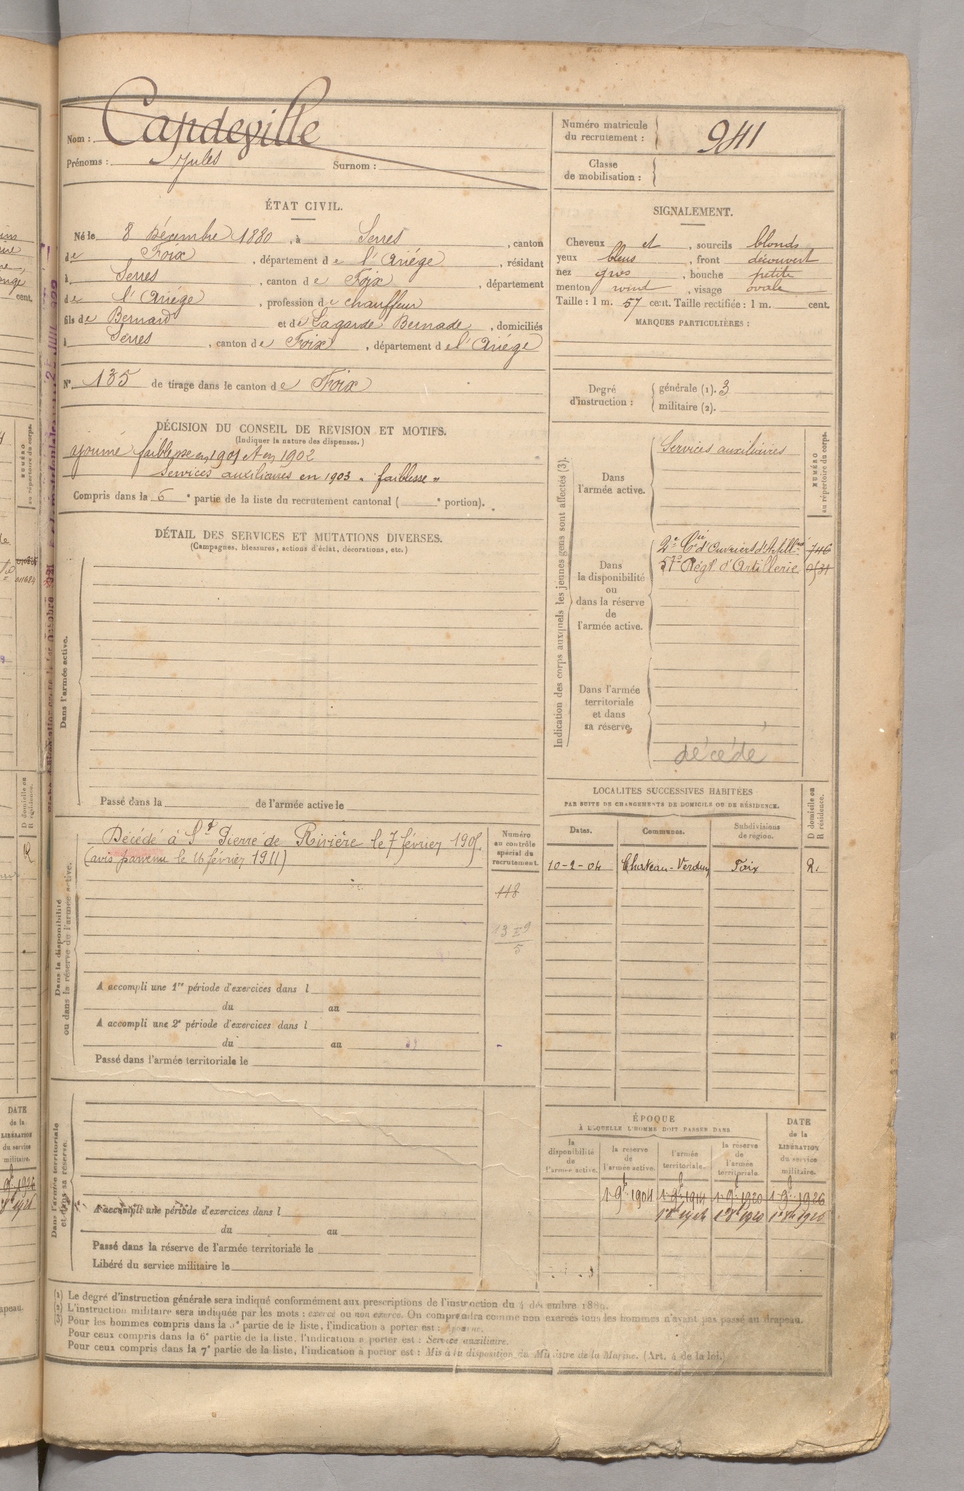 Nom : Capdeville
Prénoms : Jules Surnom :
Numéro matricule du recrutement : 941
Classe de mobilisation :
ÉTAT CIVIL.
Né le 8 Décembre 1880, à Serres, canton
de Foix, département de l'Ariége, résidant
à Serres, canton de Foix, département
de l'Ariége, profession de chauffeur
fils de Bernard et de Lagarde Bernade, domiciliés
à Serres, canton de Foix, département de l'Ariége
N° 135 de tirage dans le canton de Foix
DÉCISION DU CONSEIL DE REVISION ET MOTIFS.
(Indiquer la nature des dispenses.)
ajourné faiblesse en 1901 et en 1902
Services auxiliaires en 1903 « faiblesse »
Compris dans la 6e partie de la liste du recrutement cantonal ( e portion).
DÉTAIL DES SERVICES ET MUTATIONS DIVERSES.
(Campagnes, blessures, actions d'éclat, décorations, etc.)
Dans l'armée active.
Passé dans la de l'armée active le
Dans la disponibilité
ou dans la réserve de l'armée active.
Décédé à St Pierre de Rivière le 7 février
(avis parvenu le 16 février 1911)
Numéro
au contrôle
spécial du
recrutement.
118
A accompli une 1re période d'exercices dans l
du au
A accompli une 2e période d'exercices dans l
du au
Passé dans l'armée territoriale le
Dans l'armée territoriale
et dans sa réserve.
A accompli une période d'exercices dans l
du au
Passé dans la réserve de l'armée territoriale le
Libéré du service militaire le
SIGNALEMENT.
Cheveux et, sourcils blonds
yeux bleus, front découvert
nez gros, bouche petite
menton rond, visage ovale
Taille : 1 m. 57 cent. Taille rectifiée : 1 m. cent.
MARQUES PARTICULIÈRES :
Degré
d'instruction :
générale (1). 3
militaire (2).
Indication des corps auxquels les jeunes gens sont affectés (3).
NUMÉRO
au répertoire du corps.
Dans
l'armée active.
Services auxiliaires
Dans
la disponibilité
ou
dans la réserve
de
l'armée active.
2e Cie d'Ouvriers d'Artillerie 746
57e Régt d'Artillerie
Dans l'armée
territoriale
et dans
sa réserve.
décédé
LOCALITÉS SUCCESSIVES HABITÉES
PAR SUITE DE CHANGEMENTS DE DOMICILE OU DE RÉSIDENCE.
D domicile ou
R résidence.
Dates. Communes. Subdivisions de région.
10-2-04 Chateau-Verdun Foix R.
ÉPOQUE
À LAQUELLE L'HOMME DOIT PASSER DANS
DATE
de la
LIBÉRATION
du service
militaire.
la disponibilité de l'armée active.
la réserve de l'armée active.
l'armée territoriale.
la réserve de l'armée territoriale.
1 9bre 1904 1 9bre 1914 1 9bre 1920 1 9bre 1926
(1) Le degré d'instruction générale sera indiqué conformément aux prescriptions de l'instruction du 4 décembre 1889.
(2) L'instruction militaire sera indiquée par les mots : exercé ou non exercé. On comprendra comme non exercés tous les hommes n'ayant pas passé au drapeau.
(3) Pour les hommes compris dans la 5e partie de la liste, l'indication à porter est :
Pour ceux compris dans la 6e partie de la liste, l'indication à porter est : Service auxiliaire.
Pour ceux compris dans la 7e partie de la liste, l'indication à porter est : Mis à la disposition du Ministre de la Marine. (Art. 4 de la loi.)